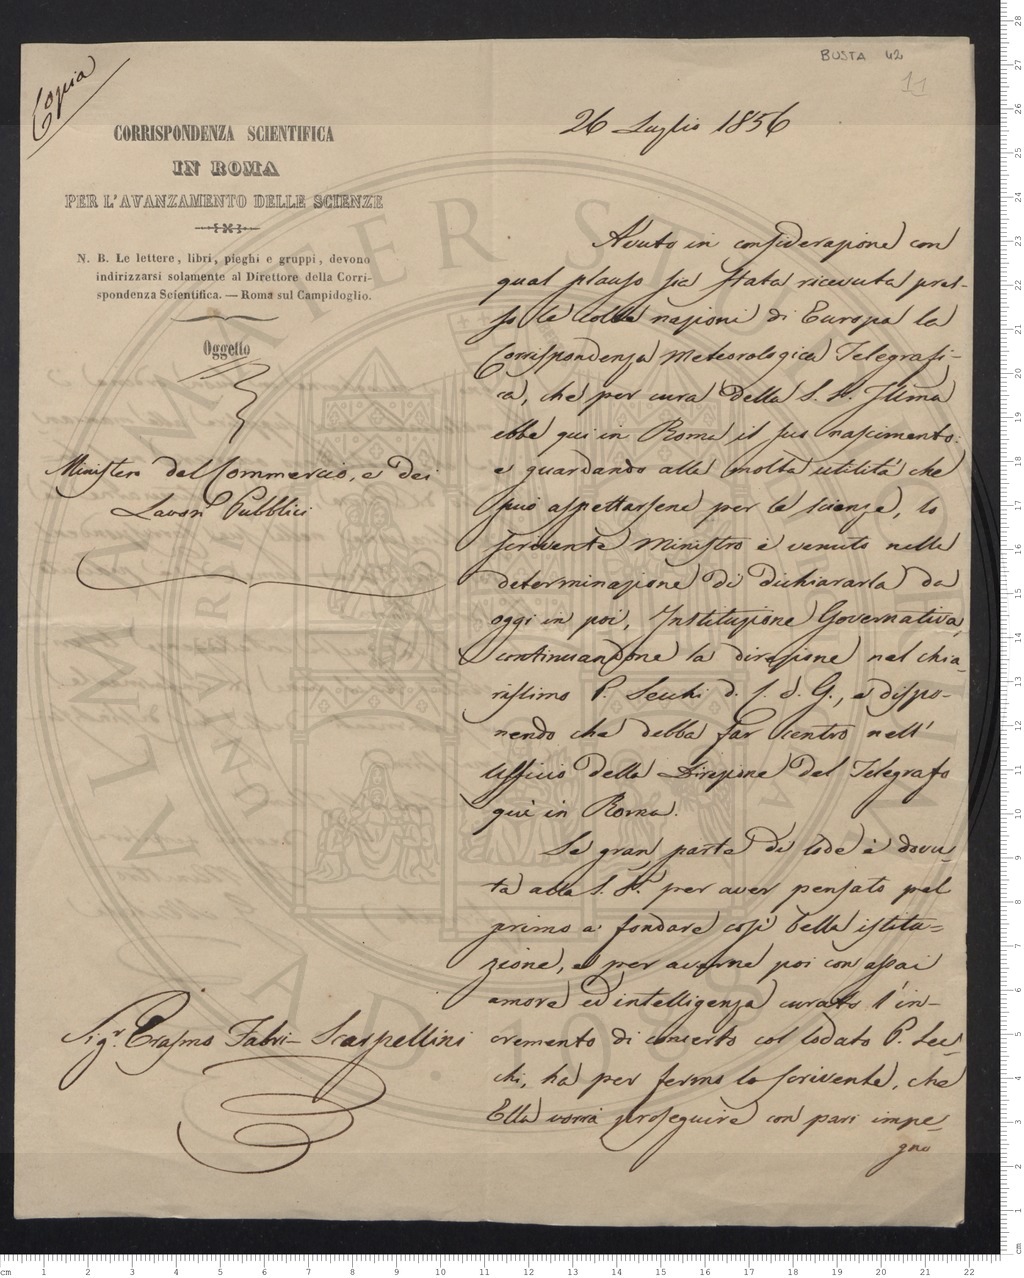 BUSTA 42
11
Copia
CORRISPONDENZA SCIENTIFICA
IN ROMA
PER L'AVANZAMENTO DELLE SCIENZE
N. B. Le lettere, libri, pieghi e gruppi, devono
indirizzarsi solamente al Direttore della Corri-
spondenza Scientifica. — Roma sul Campidoglio.
Oggetto
Ministero del Commercio, e dei
Lavori Pubblici
Sigr. Erasmo Fabri-Scarpellini
26 Luglio 1856
Avuto in considerazione con
qual plauso sia stata ricevuta pres-
so le colte nazioni di Europa la
Corrispondenza Meteorologica Telegrafi-
ca, che per cura della S. V. Illma
ebbe qui in Roma il suo nascimento:
e guardando alla molta utilità che
può aspettarsene per le scienze, lo
scrivente Ministro è venuto nella
determinazione di dichiararla da
oggi in poi, Instituzione Governativa,
continuandone la direzione nel chia-
rissimo P. Secchi d. C. d. G., e dispo-
nendo che debba far centro nell'
Ufficio della Direzione del Telegrafo
quì in Roma.
Se gran parte di lode è dovu-
ta alla S. V. per aver pensato pel
primo a fondare così bella istitu=
zione, e per averne poi con assai
amore ed intelligenza curato l'in-
cremento di concerto col lodato P. Sec-
chi, ha per fermo lo scrivente, che
Ella vorrà proseguire con pari impe-
gno